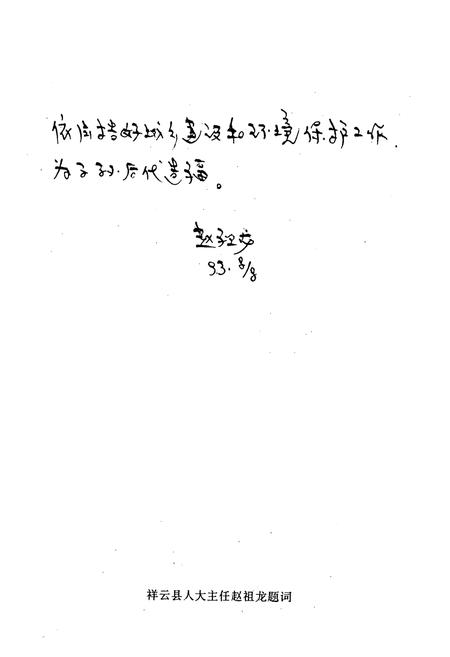 依法搞好城乡建设和环境保护工作,
为子孙后代造福。
赵祖龙
93.8/8
祥云县人大主任赵祖龙题词